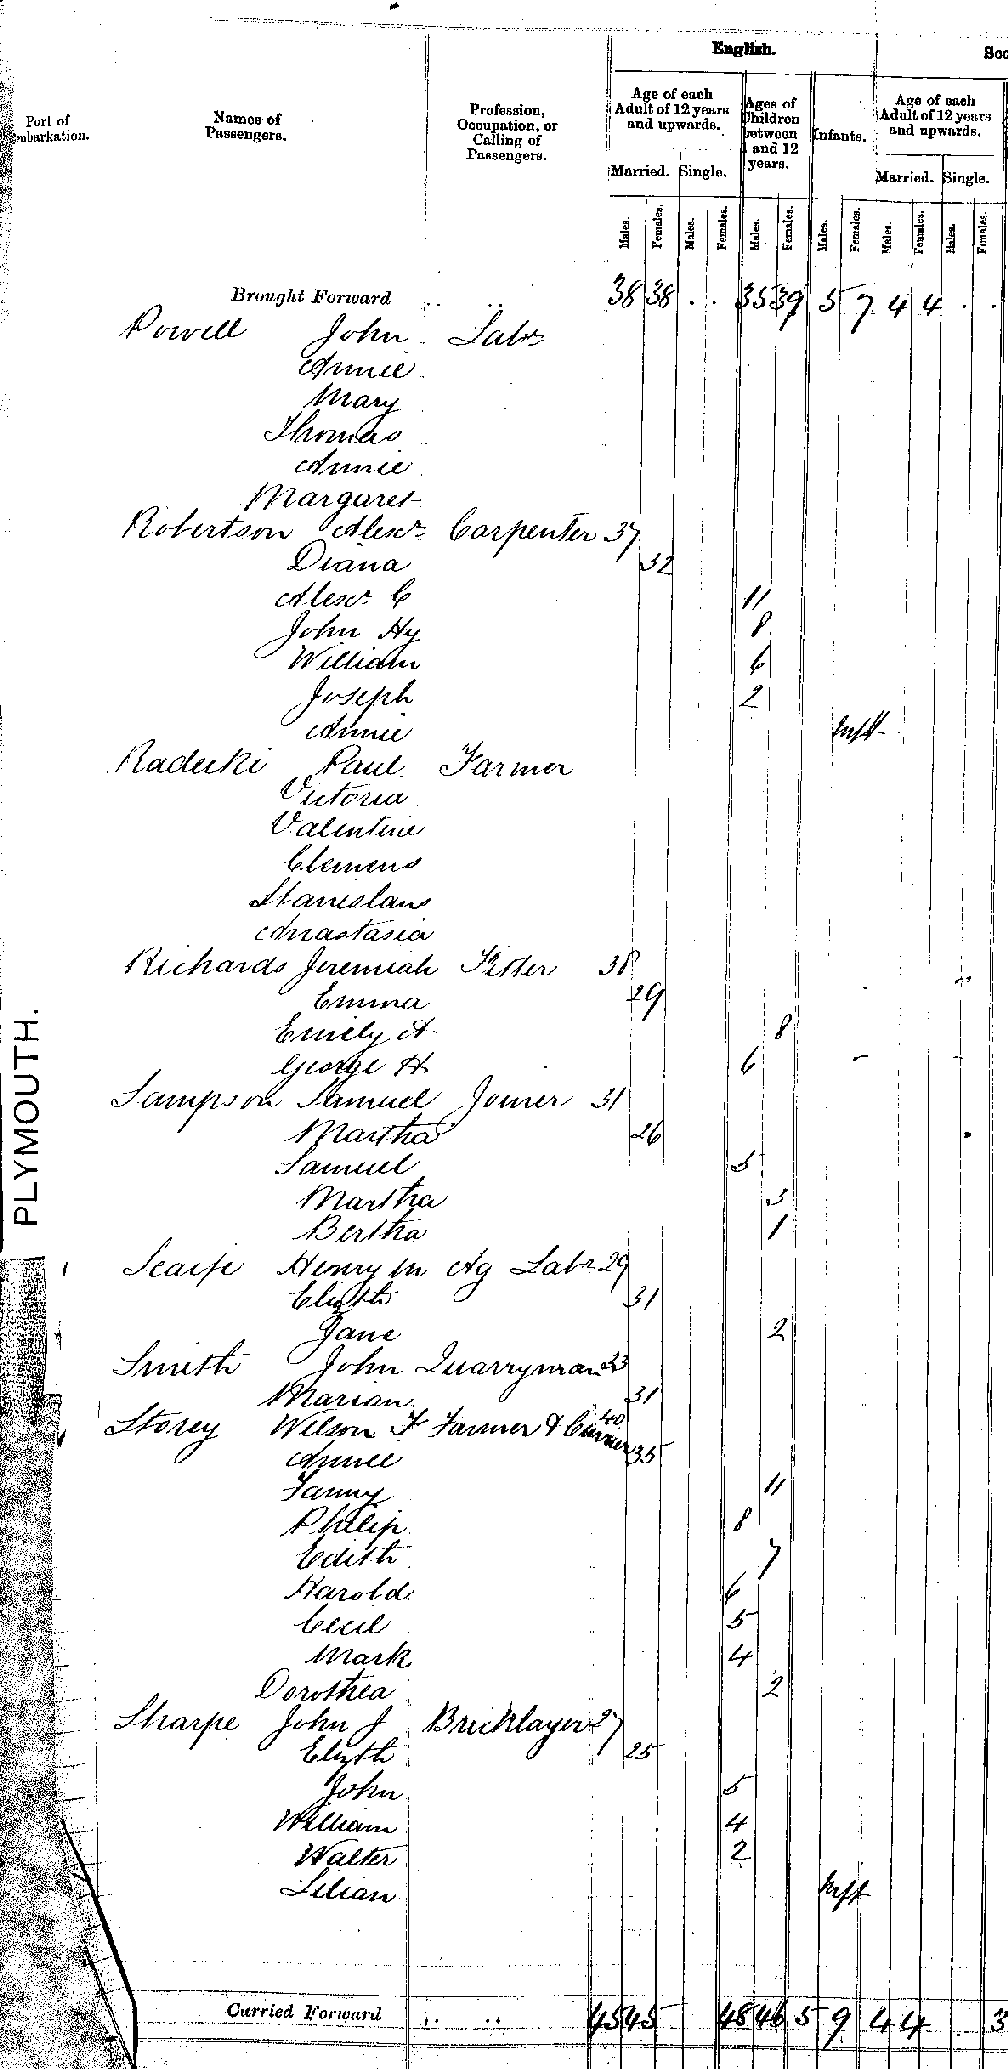 English.
Port of
mbarkation.
Names of
Passengers.
Profession,
Occupation, or
Calling of
Passengers.
Age of each
Adult of 12 years
and upwards.
Ages of
Children
between
and 12
years.
Infants.
Age of each
Adult of 12 years
and upwards.
Married. Single.
Married. Single.
Males. Females. Males. Females. Males. Females. Males. Females. Males. Females. Males. Females.
Brought Forward .. .. 38 38 . . 35 39 5 7 4 4 . .
Powell John Labr
Annie
Mary
Thomas
Annie
Margaret
Robertson Alexr. Carpenter 37
Diana 32
Alexr. C 11
John Hy 8
William 6
Joseph 2
Annie Inft
Radecki Paul Farmer
Victoria
Valentine
Clemens
Stanislaus
Anastasia
Richards Jeremiah Fitter 38
Emma 29
Emily A 8
George H 6
Sampson Samuel Joiner 31
Martha 26
Samuel 5
Martha 3
Bertha 1
Scaife Henry M Ag Labr 29
Elizth 31
Jane 2
Smith John Quarryman 23
Marian 31
Storey Wilson F Farmer & 40
Annie 35
Fanny 11
Philip 8
Edith 7
Harold 6
Cecil 5
Mark 4
Dorothea 2
Sharpe John J Bricklayer 27
Elizth 25
John 5
William 4
Walter 2
Lilian Inft
PLYMOUTH.
Carried Forward .. .. 45 45 48 46 5 9 4 4 3